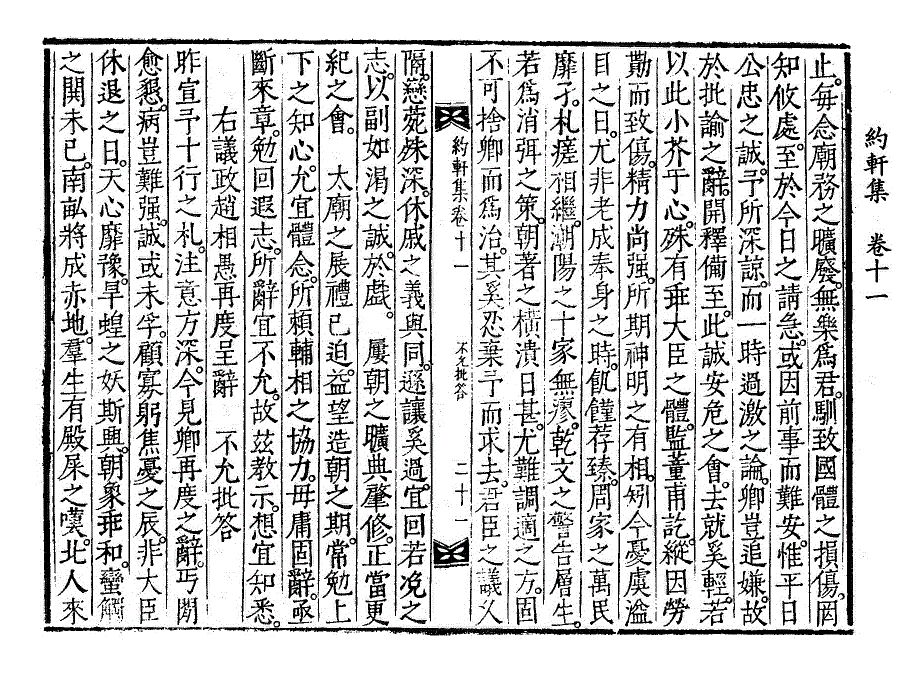 約軒集 卷十一
止。每念廟務之曠廢。無樂爲君。馴致國體之損傷。罔
知攸處。至於今日之請急。或因前事而難安。惟平日
公忠之誠。予所深諒。而一時過激之論。卿豈追嫌。故
於批諭之辭。開釋備至。此誠安危之會。去就奚輕。若
以此小芥于心。殊有乖大臣之體。監董甫訖。縱因勞
勩而致傷。精力尚强。所期神明之有相。矧今憂虞溢
目之日。尤非老成奉身之時。飢饉荐臻。周家之萬民
靡孑。札瘥相繼。潮陽之十家無瘳。乾文之警告層生。
若爲消弭之策。朝著之橫潰日甚。尤難調適之方。固
不可捨卿而爲治。其奚忍棄予而求去。君臣之議久
約軒集卷十一
不允批答
二十一
隔。戀嫪殊深。休戚之義與同。遜讓奚過。宜回若浼之
志。以副如渴之誠。於戱。 屢朝之曠典肇修。正當更
紀之會。 太廟之展禮已迫。益望造朝之期。常勉上
下之知心。允宜體念。所賴輔相之協力。毋庸固辭。亟
斷來章。勉回遐志。所辭宜不允。故玆敎示。想宜知悉。
右議政趙相愚再度呈辭 不允批答
昨宣予十行之札。注意方深。今見卿再度之辭。丐閒
愈懇。病豈難强。誠或未孚。顧寡躬焦憂之辰。非大臣
休退之日。天心靡豫。旱蝗之妖斯興。朝象乖和。蠻觸
之鬨未已。南畝將成赤地。羣生有殿屎之嘆。北人來